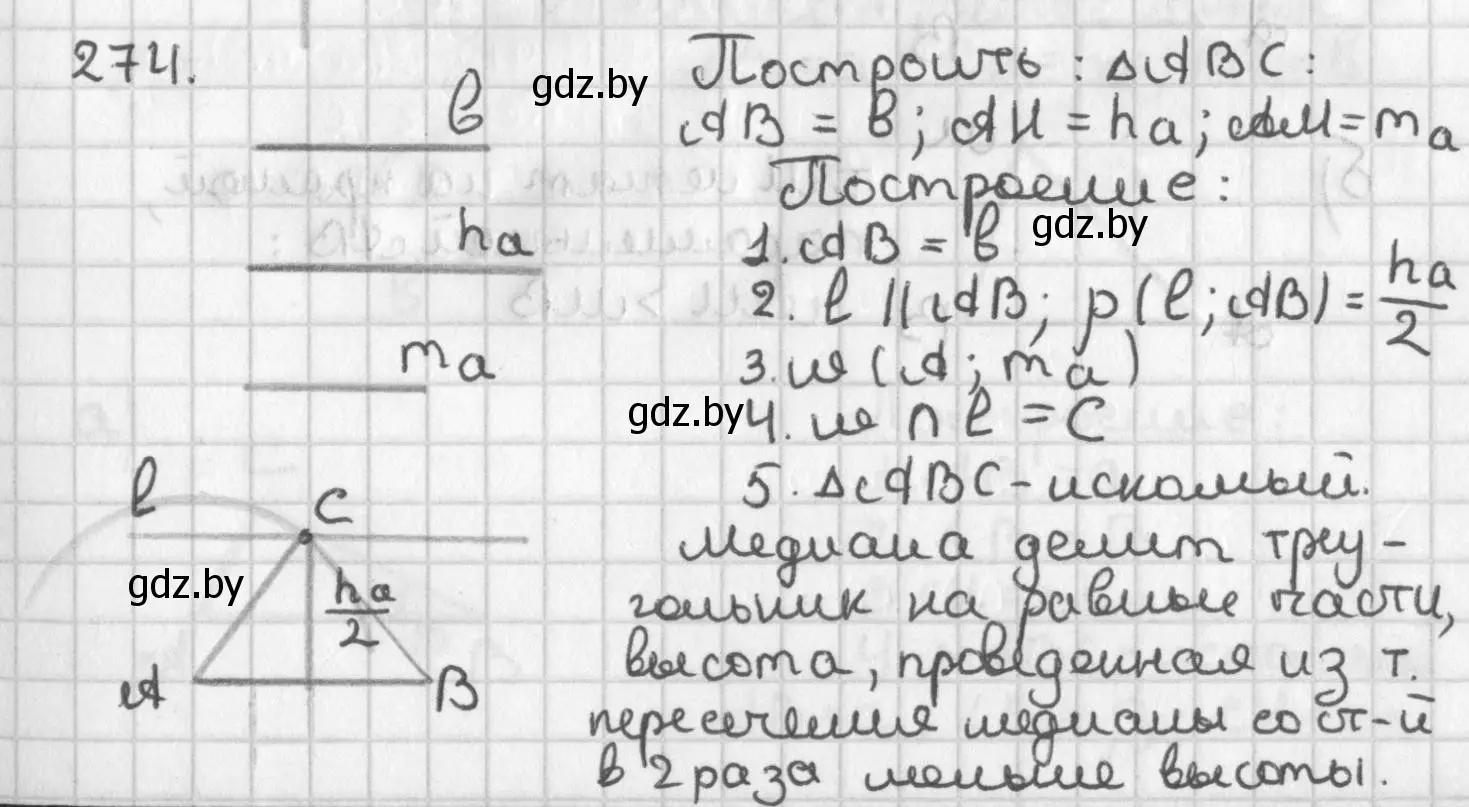 274.
в
ha
ma
l
C
ha/2
A
B
Построить: ΔABC:
AB = в; AH = ha; AM = ma
Построение:
1. AB = в
2. l || AB; ρ(l; AB) = ha/2
3. ω (A; ma)
4. ω ∩ l = C
5. ΔABC - искомый.
Медиана делит треу-
гольник на равные части,
высота, проведенная из т.
пересечения медианы со ст-й
в 2 раза меньше высоты.
gdz.by
gdz.by
gdz.by
gdz.by